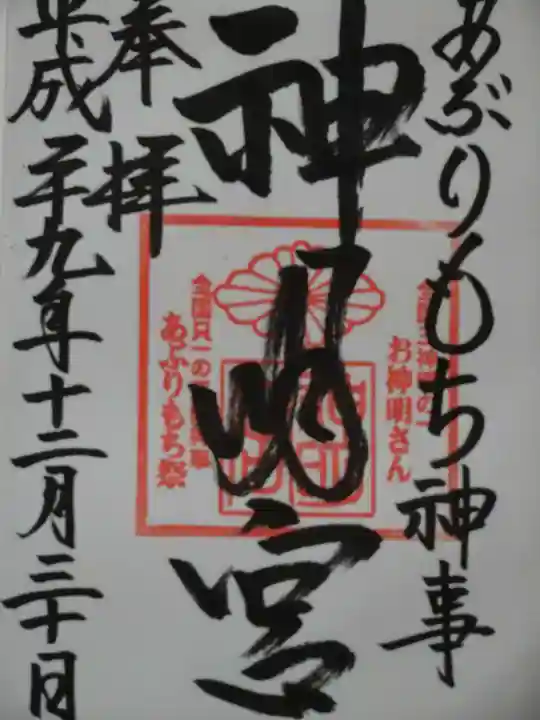 あぶりもち神事
神明宮
奉拝
平成二十九年十二月三十日
全国三神明の一
お神明さん
全国只一の
あぶりもち祭